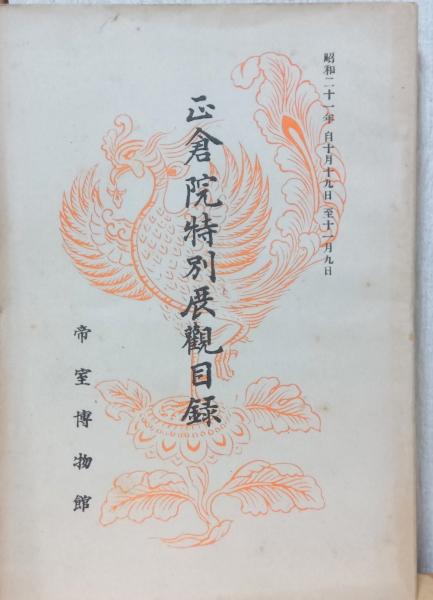 昭和二十一年 自十月十九日 至十一月九日
正倉院特別展觀目録
帝室博物館